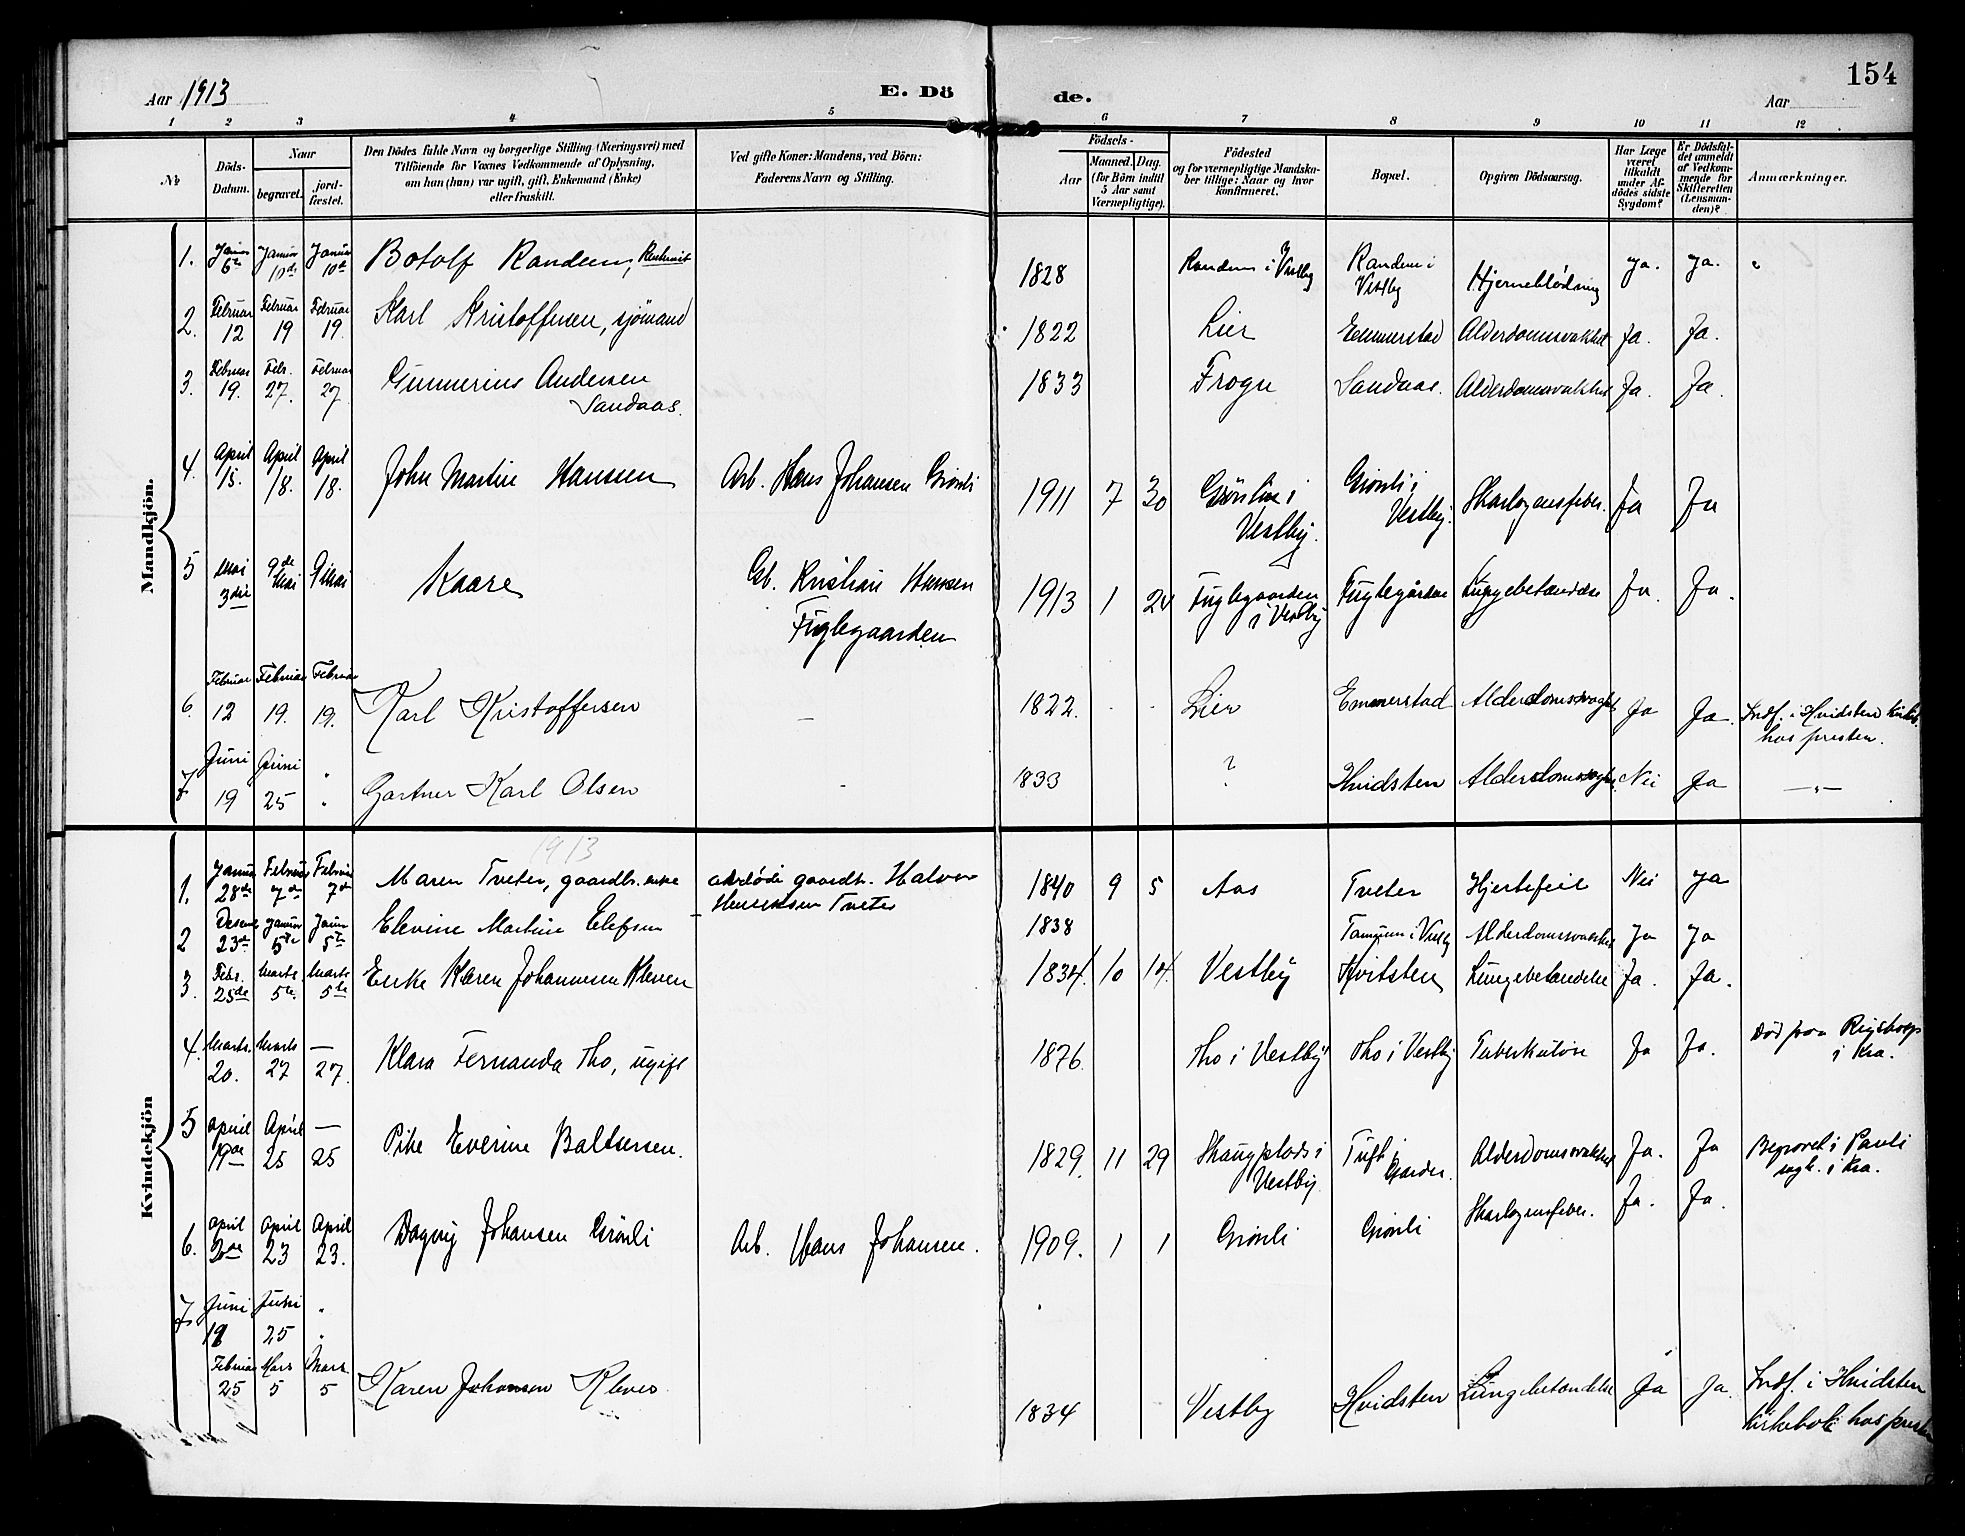 154
Aar 1913
E. Dö
de.
Aar
1 2 3 4 5 6 7 8 9 10 11 12
№
Döds-
Datum.
Naar
begravet.
jord-
fæstet.
Den Dödes fulde Navn og borgerlige Stilling (Næringsvei) med
Tilföiende for Voxnes Vedkommende af Oplysning,
om han (hun) var ugift, gift, Enkemand (Enke)
eller fraskilt.
Ved gifte Koner: Mandens, ved Börn:
Faderens Navn og Stilling.
Födsels-
Aar
Maaned.
Dag.
(for Börn indtil
5 Aar samt
Værnepligtige).
Födested
og for værnepligtige Mandska-
ber tillige: Naar og hvor
konfirmeret.
Bopæl.
Opgiven Dödsaarsag.
Har Læge
været
tilkaldt
under Af-
dödes sidste
Sygdom?
Er Dödsfal-
det anmeldt
af Vedkom-
mende for
Skifteretten
(Lensman-
den)?
Anmærkninger.
Mandkjön.
1. Januar 6te Januar 10de Januar 10de Botolf Randem, 1828 Randem i Vestby Randem i Vestby Hjerneblödning ja. ja. "
2. Februar 12 Februar 19 Februar 19. Karl Kristoffersen, sjömand 1822 Lier Emmerstad Alderdomssvakhet Ja. Ja.
3. Februar 19. Febr. 27. Februar 27. Gunnerius Andersen Sandaas. 1833 Frogn Sandaas. Alderdomssvakhet Ja. Ja.
4. April 15. April 18. April 18. John Martin Hansen Arb. Hans Johansen Grönli 1911 7 30 Grönlie i Vestby. Grönli i Vestby. Skarlagensfeber. Ja Ja
5 Mai 3die 9de Mai 9 Mai Kaare Gb. Kristian Hansen Fuglegaarden 1913 1 24 Fuglegaarden i Vestby Fuglegården Lungebetændelse Ja. Ja.
6. Februar 12 Februar 19. Februar 19. Karl Kristoffersen – 1822. Lier Emmerstad Alderdomssvaghet Ja Ja. Indf. i Hvidsten kirkeb. hos presten.
7 Juni 19 Juni 25 " Gartner Karl Olsen - 1833 ? Hvidsten Alderdomssvaghet. Nei Ja —"—
Kvindekjön
1913
1. Januar 28de Februar 7de Februar 7de Maren Tveter, gaardbr. enke avdöde gaardbr. Halvor Tveter 1840 9 5 Aas Tveter Hjertefeil Nei ja
2 Desemb 23de Januar 5te Januar 5te Elevine Martine Elefsen 1838 i Vestby Alderdomssvakhet Ja Ja
3. Febr. 25de Marts 5te. Marts 5te Enke Karen Johannesen Kleven 1834. 10 14. Vestby Hvitsten Lungebetændelse Ja. Ja.
4. Marts. 20. Marts 27 — 27. Klara Fernanda Tho, ugift 1876. Tho i Vestby Tho i Vestby Tuberkulose Ja Ja. Död paa Rigshosp i Kra.
5 April 19de April 25 — 25 Pike Everine Baltsersen. 1829. 11 29 Skaugplads i Vestby Tuft i Garder. Alderdomssvakhet Ja. Ja Begravet i Pauli sogn. i Kra.
6. April 20de April 23 April 23. Dagny Johansen Grönli Arb. Hans Johansen. 1909. 1 1 Grönli Grönli Skarlagensfeber. Ja. Ja.
7 Juni 18 Juni 25 "
Februar 25 Mars 5 Mars 5 Karen Johansen Kleven 1834 Vestby Hvidsten Lungebetændelse Ja Ja. Indf. i Hvidsten kirkebok hos presten